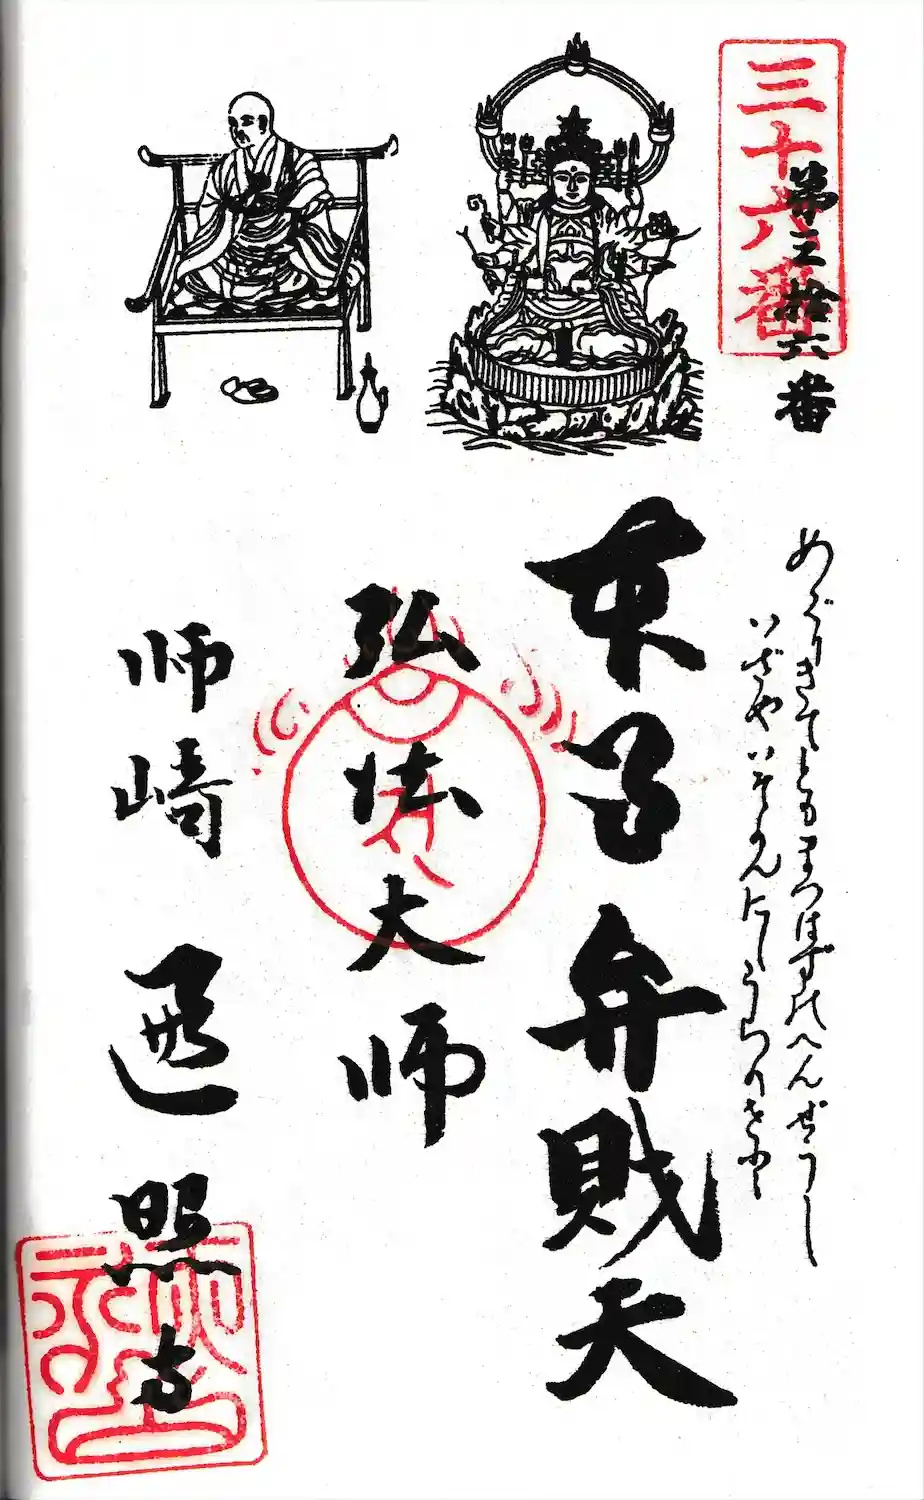 三十六番
第三拾六番
めぐりきてともまつはずのへんぜうし
いざやいそかんにしうらの
弁財天
弘法大師
师崎 遍照寺